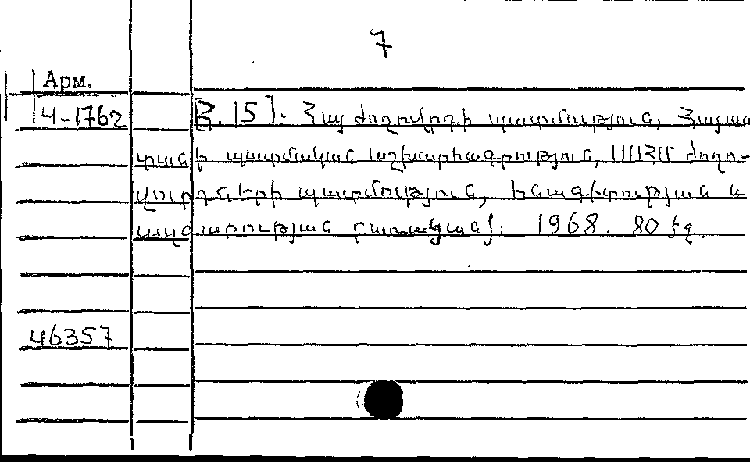 7
Арм.
Ч-1762
[Հ. 15]. Հայ ժողովրդի պատմություն, Հայաս
տանի պատմական աշխարհագրություն, ՍՍՀՄ ժողո-
վուրդների պատմություն, հնագիտության և
ազգագրության բաժակցան]. 1968. 80 էջ.
46357